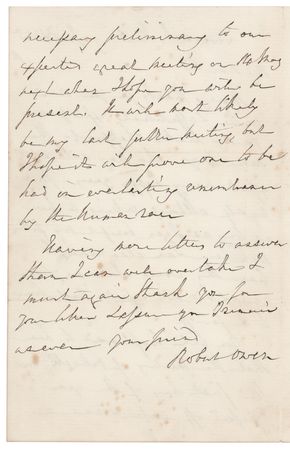 necessary preliminary to our
expected great meeting on 14 May
next when I hope you will be
present. It will most likely
be my last public meeting, but
I hope it will prove one to be
had in everlasting remembrance
by the human race
Having more letters to answer
than I can well overtake I
must again thank you for
your letter &
as ever your friend
Robert Owen